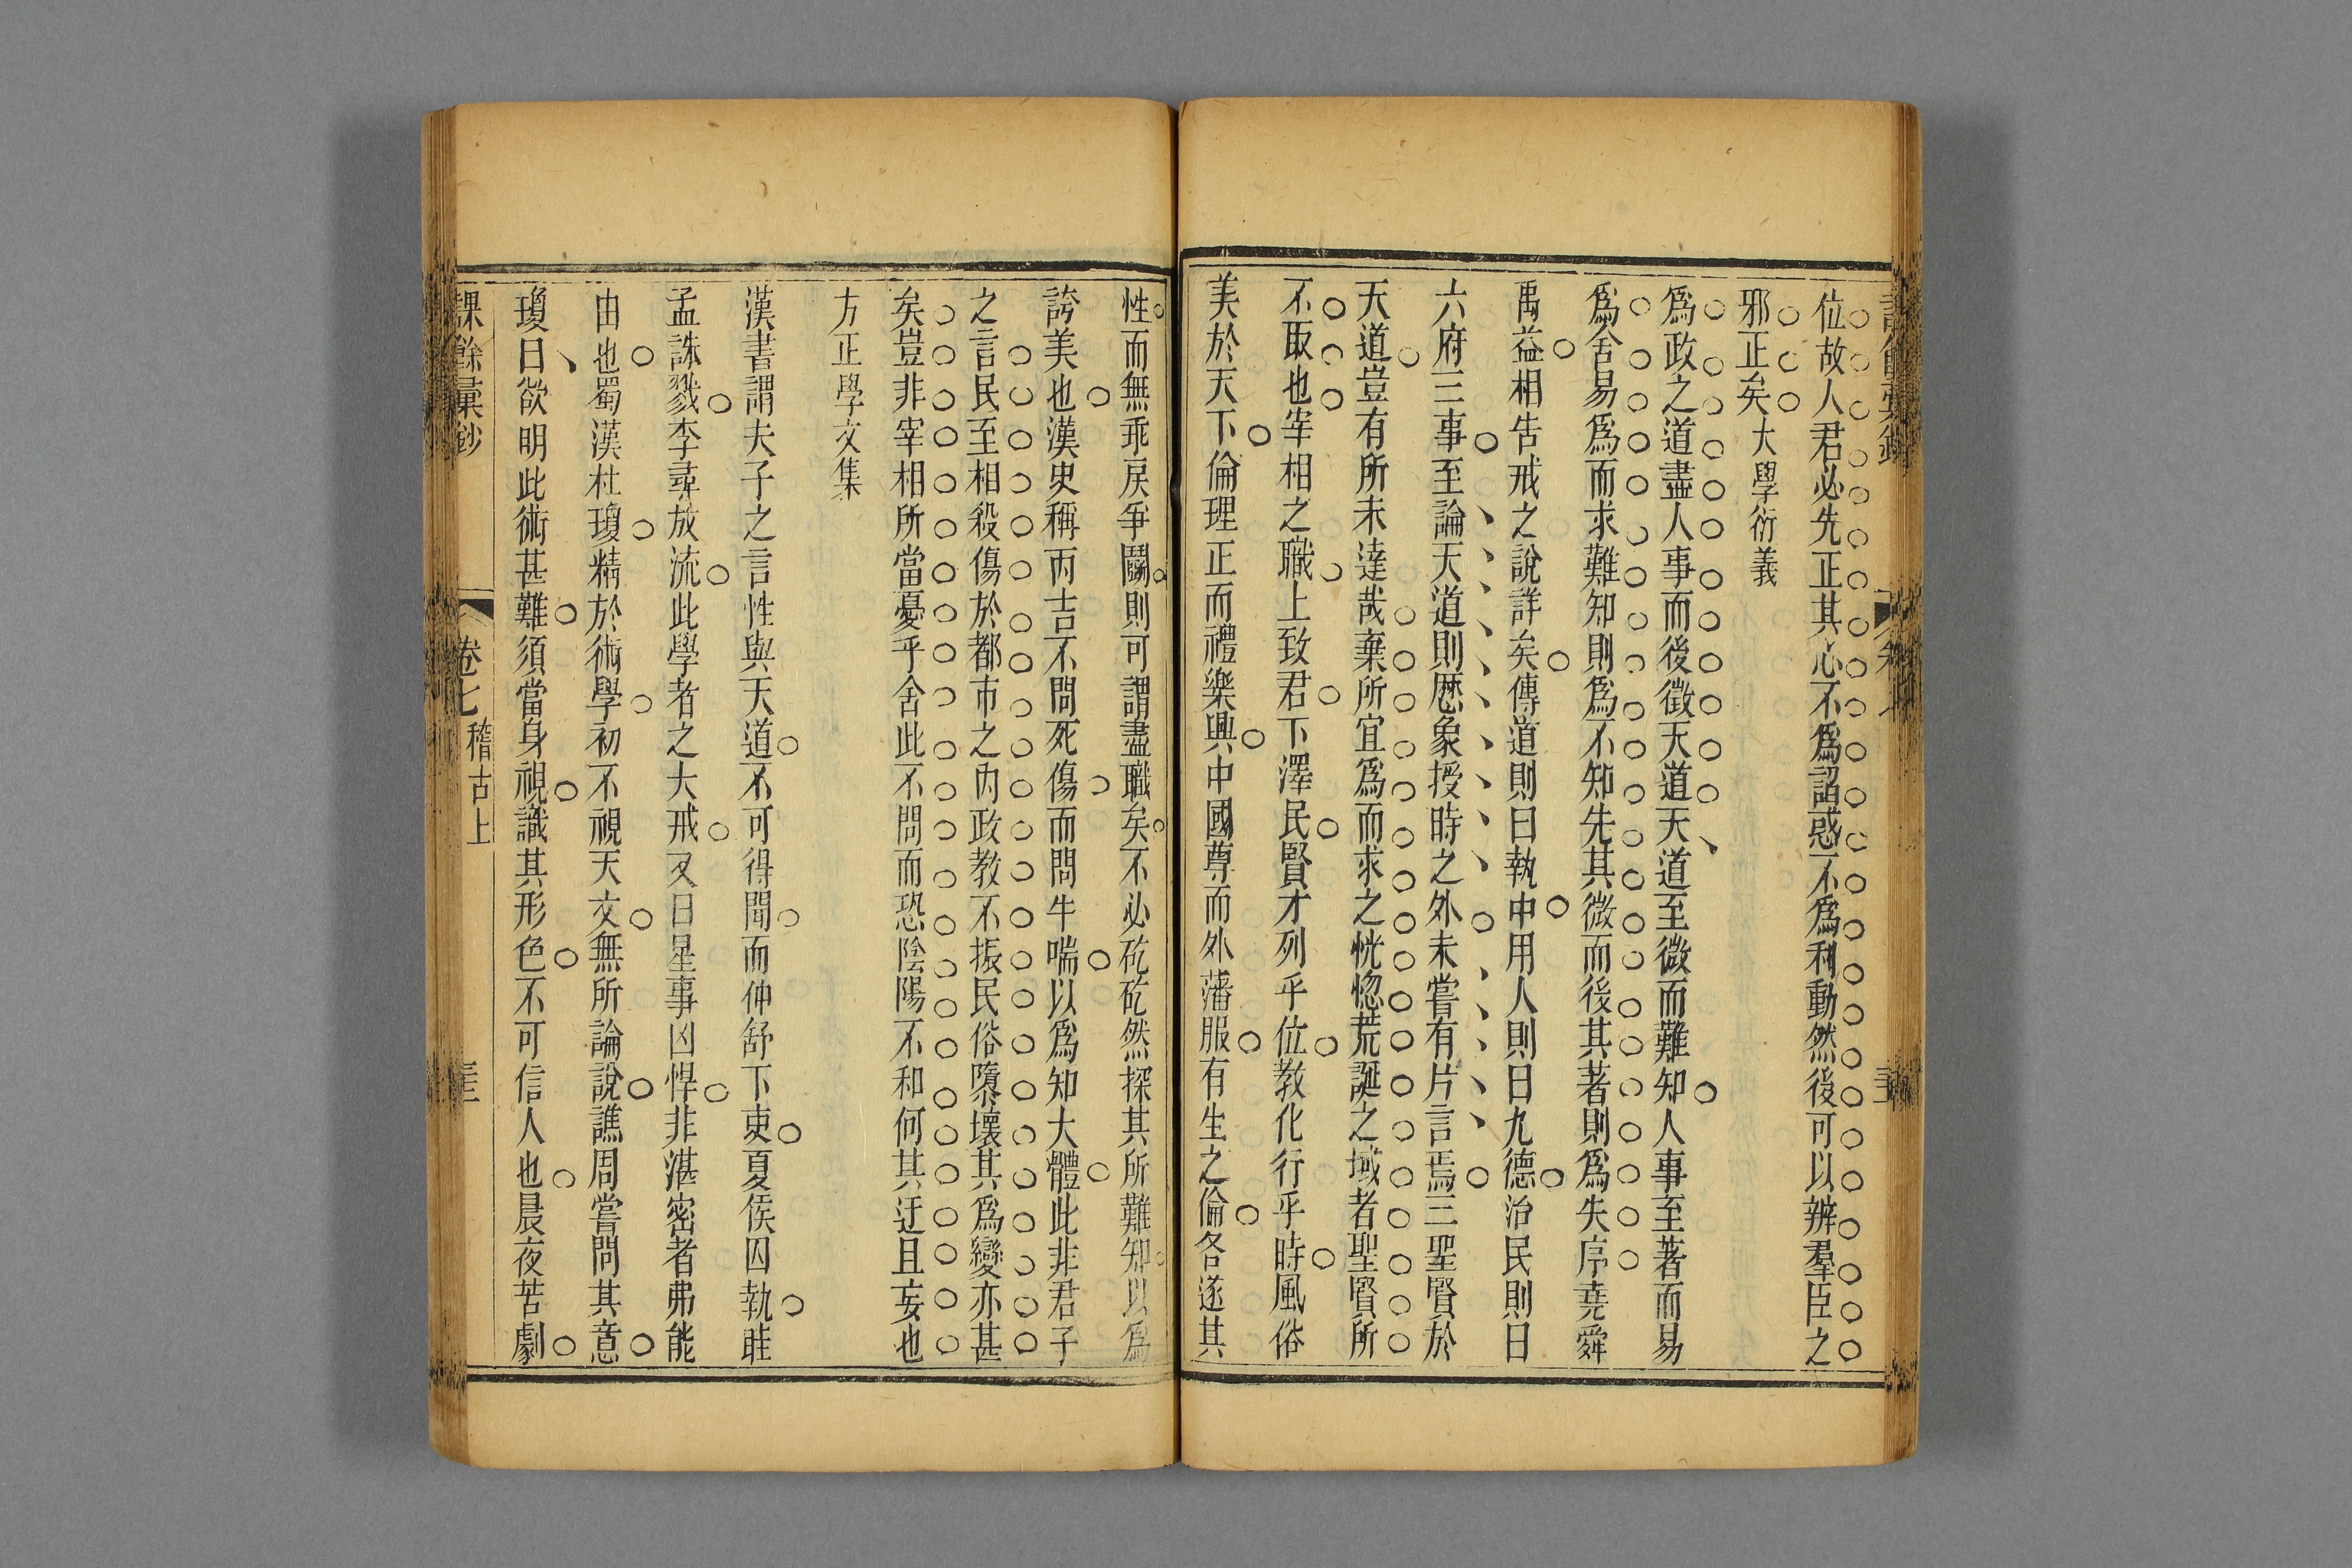 位故人君必先正其心不爲諂惑不爲利動然後可以辨羣臣之
邪正矣大學衍義
爲政之道盡人事而後徵天道天道至微而難知人事至著而易
爲舍易爲而求難知則爲不知先其微而後其著則爲失序堯舜
禹益相告戒之說詳矣傳道則曰執中用人則曰九德治民則曰
六府三事至論天道則歴象授時之外未嘗有片言焉三聖賢於
天道豈有所未達哉棄所宜爲而求之恍惚荒誕之域者聖賢所
不取也宰相之職上致君下澤民賢才列乎位教化行乎時風俗
美於天下倫理正而禮樂興中國尊而外藩服有生之倫各遂其
性而無乖戾爭鬭則可謂盡職矣不必矻矻然探其所難知以爲
誇美也漢史稱丙吉不問死傷而問牛喘以爲知大體此非君子
之言民至相殺傷於都市之內政教不振民俗隳壞其爲變亦甚
矣豈非宰相所當憂乎舍此不問而恐陰陽不和何其迂且妄也
方正學文集
漢書謂夫子之言性與天道不可得聞而仲舒下吏夏侯囚執眭
孟誅戮李尋放流此學者之大戒又曰星事凶悍非湛密者弗能
由也蜀漢杜瓊精於術學初不視天文無所論說譙周嘗問其意
瓊曰欲明此術甚難須當身視識其形色不可信人也晨夜苦劇
課餘彙鈔
卷七 稽古上